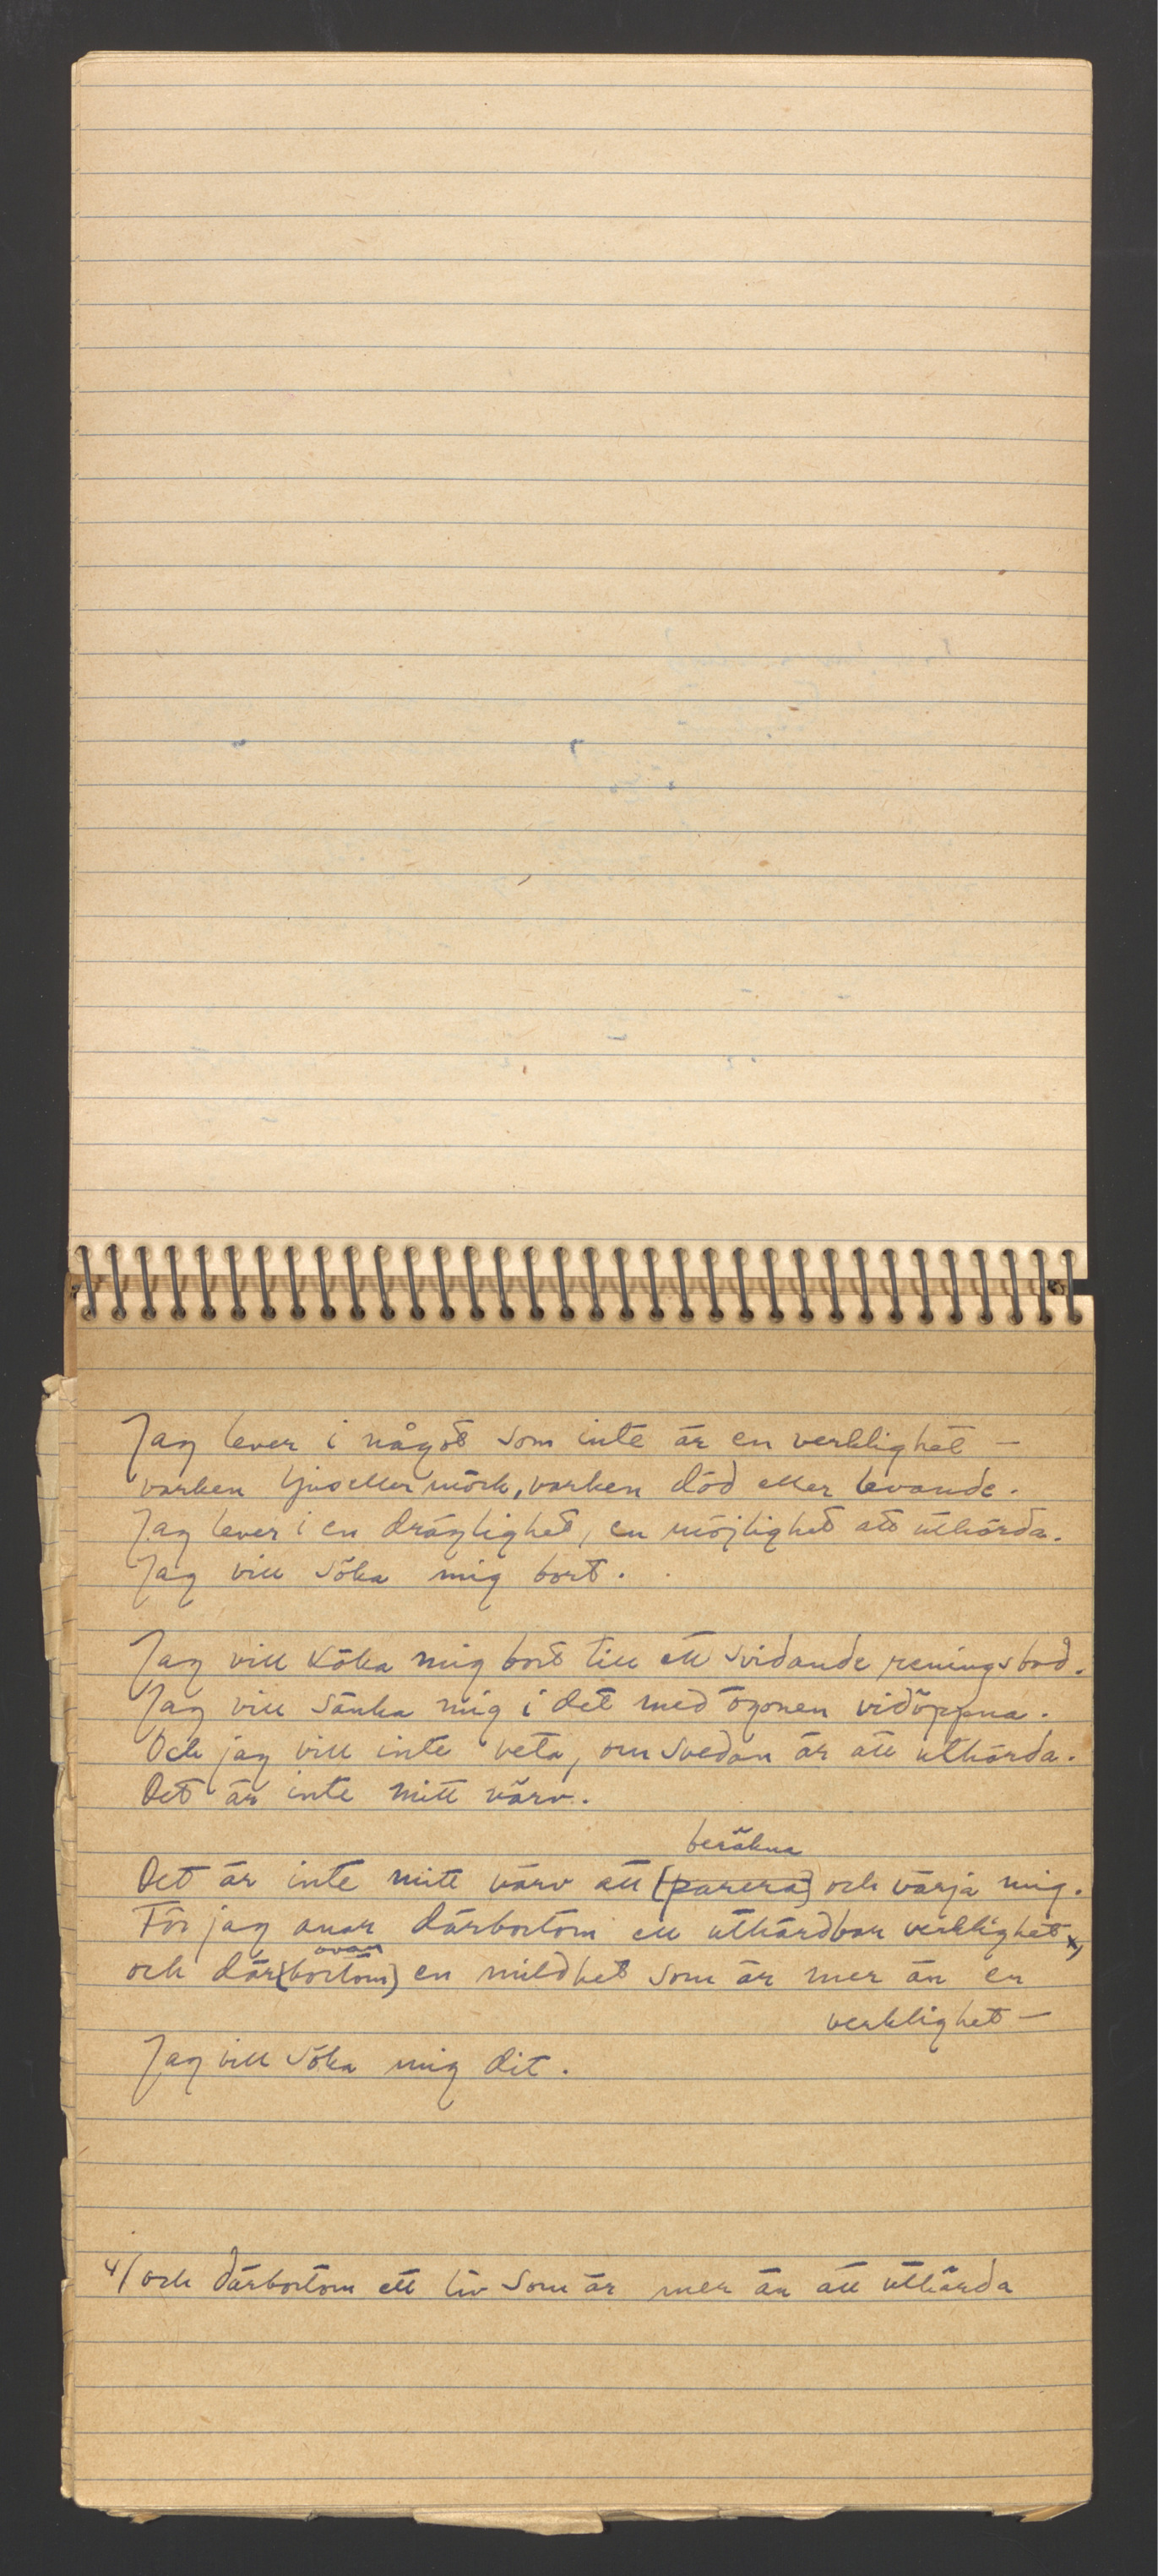 Jag lever i något som inte är en verklighet —
varken ljus eller mörk, varken död eller levande.
Jag lever i en dräglighet, en möjlighet att uthärda.
Jag vill söka mig bort.
Jag vill söka mig bort till ett svidande reningsbad.
Jag vill sänka mig i det med ögonen vidöppna.
Och jag vill inte veta, om svedan är att uthärda.
Det är inte mitt värv.
beräkna
Det är inte mitt värv att [parera] och värja mig.
För jag anar därbortom en uthärdbar verklighet x)
ovan
och där[bortom] en mildhet som är mer än en
verklighet —
Jag vill söka mig dit.
x/ och därbortom ett liv som är mer än att uthärda